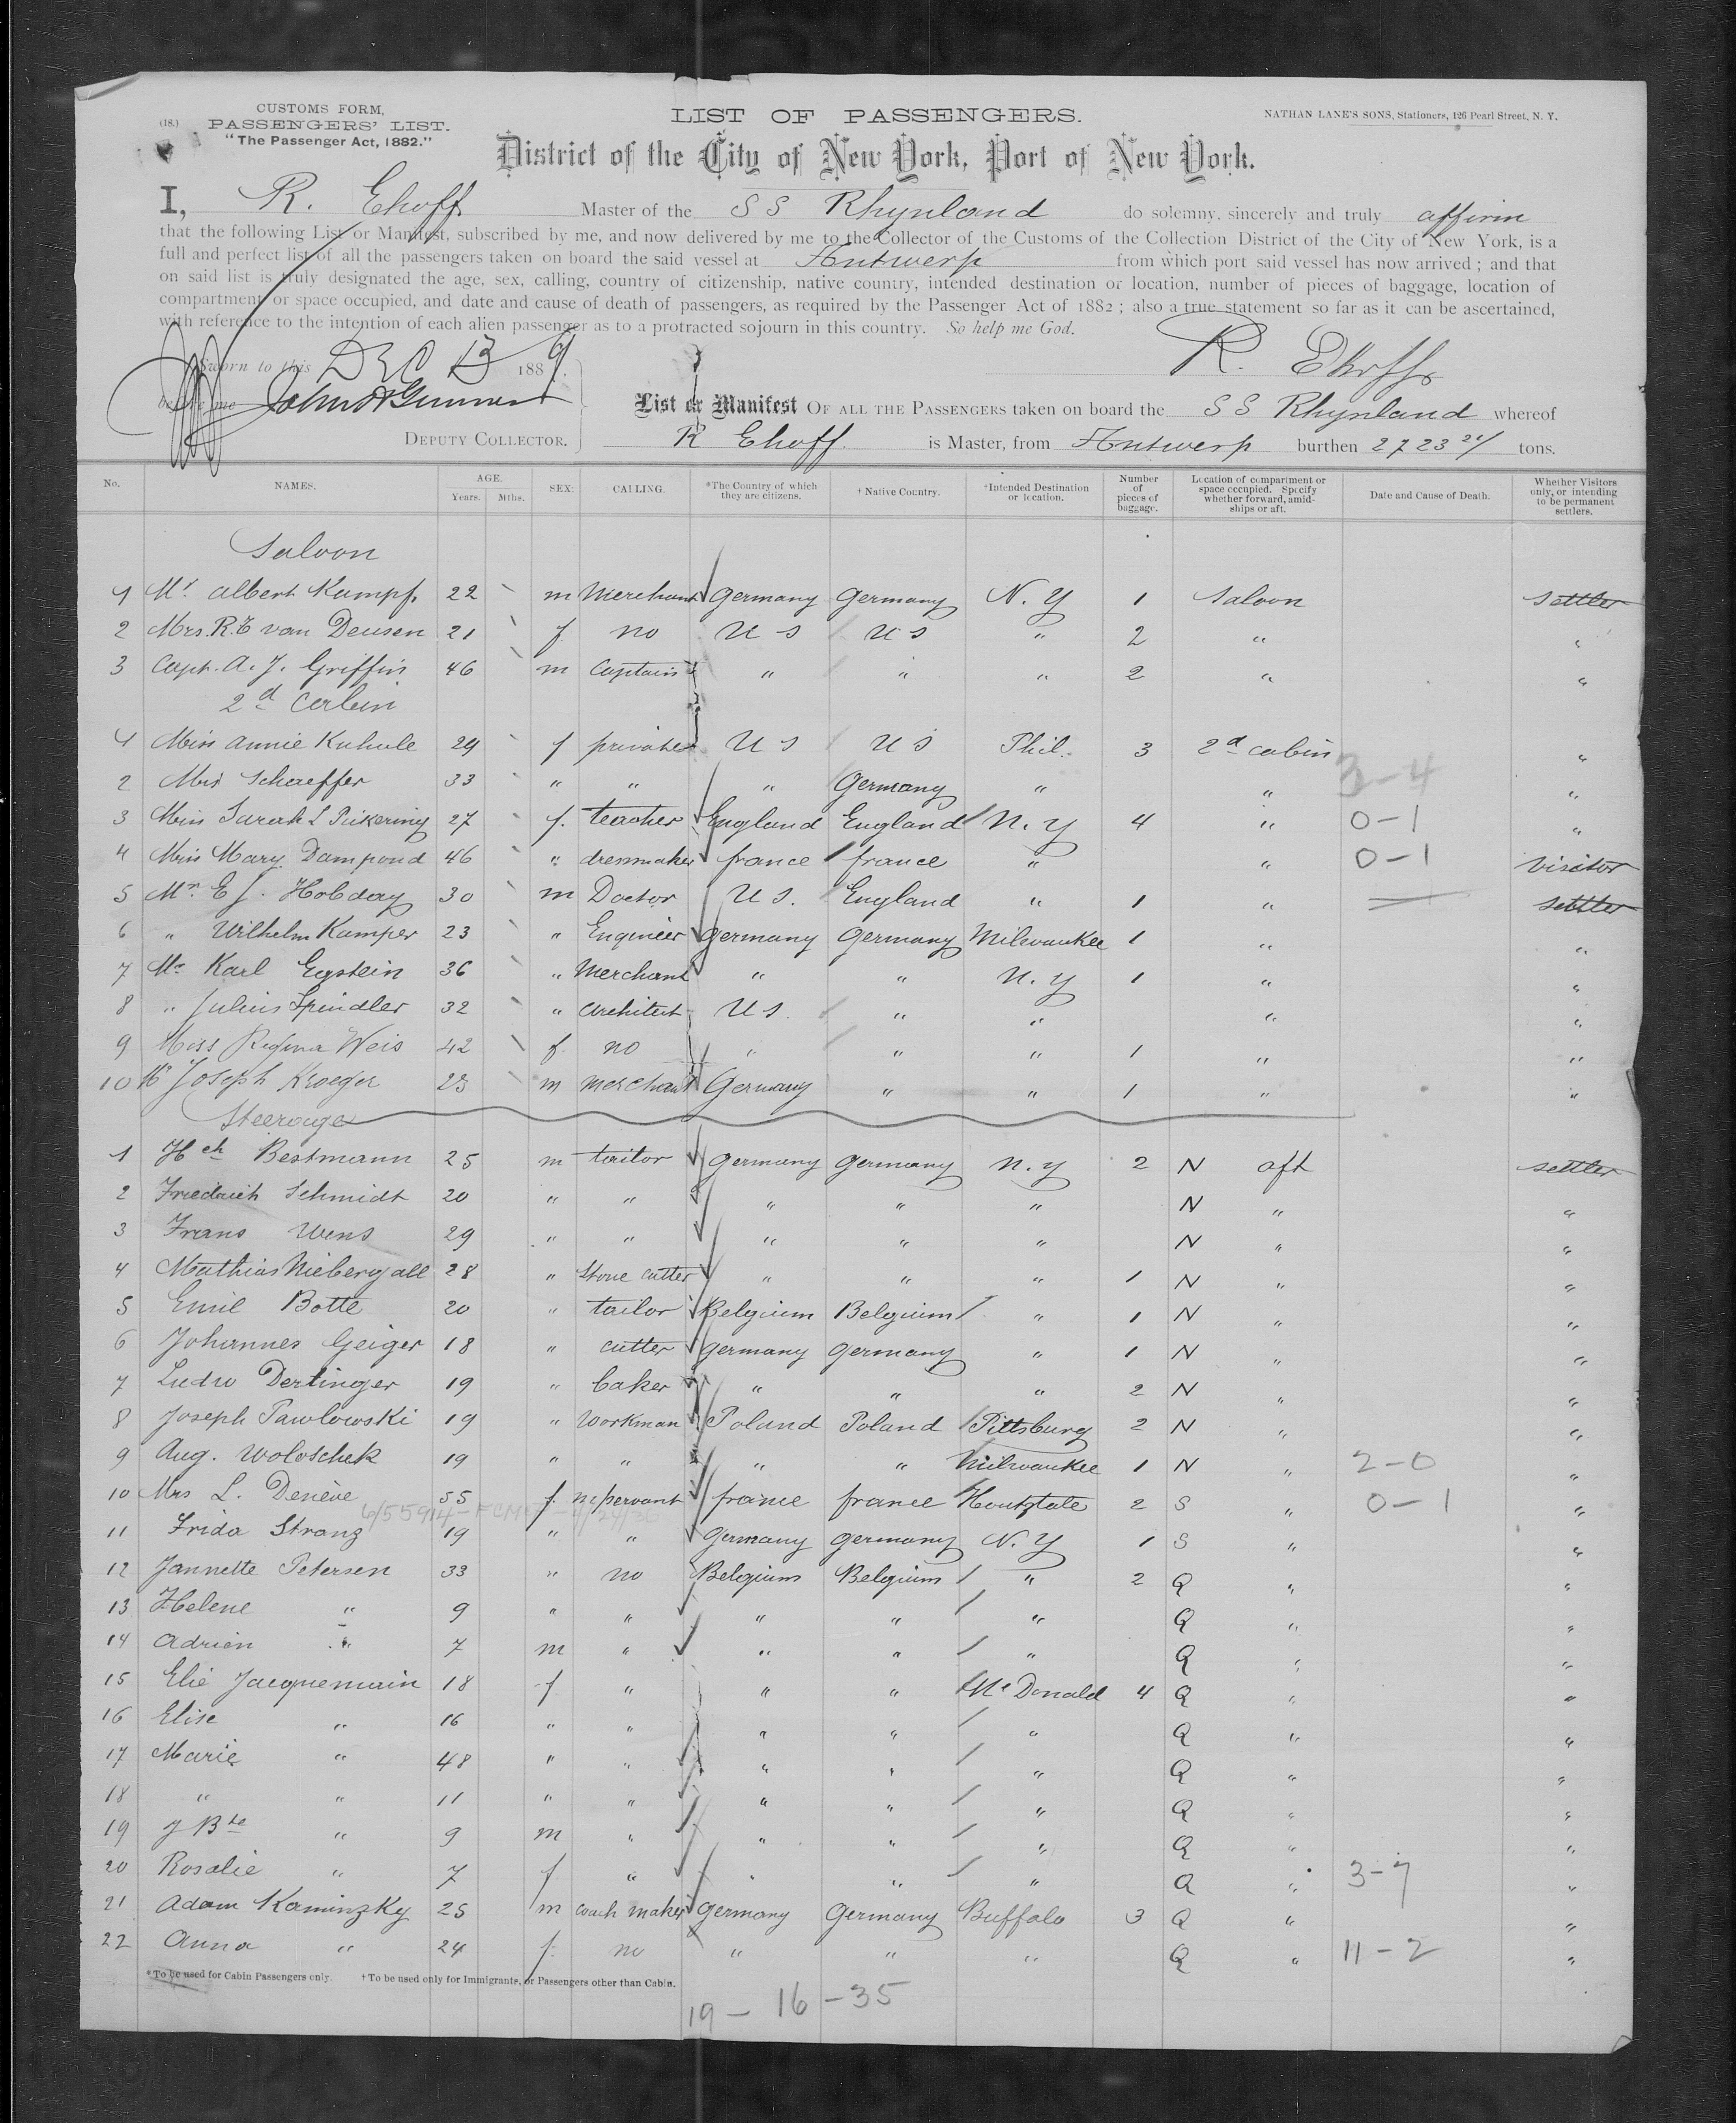 (18.)
CUSTOMS FORM,
PASSENGERS' LIST.
"The Passenger Act, 1882."
LIST OF PASSENGERS.
NATHAN LANE'S SONS, Stationers, 126 Pearl Street, N. Y.
District of the City of New York, Port of New York.
I, R. Ehoff Master of the SS Rhynland do solemny, sincerely and truly affirm
that the following List or Manifest, subscribed by me, and now delivered by me to the Collector of the Customs of the Collection District of the City of New York, is a
full and perfect list of all the passengers taken on board the said vessel at Antwerp from which port said vessel has now arrived ; and that
on said list is truly designated the age, sex, calling, country of citizenship, native country, intended destination or location, number of pieces of baggage, location of
compartment or space occupied, and date and cause of death of passengers, as required by the Passenger Act of 1882 ; also a true statement so far as it can be ascertained,
with reference to the intention of each alien passenger as to a protracted sojourn in this country. So help me God.
Sworn to this DEC 13 1889. R. Ehoff
before me
DEPUTY COLLECTOR.
List or Manifest OF ALL THE PASSENGERS taken on board the SS Rhynland whereof
R Ehoff is Master, from Antwerp burthen 2723 tons.
No. NAMES. AGE. Years. Mths. SEX: CALLING. *The Country of which they are citizens. † Native Country. †Intended Destination or location. Number of pieces of baggage. Location of compartment or space occupied. Specify whether forward, amidships or aft. Date and Cause of Death. Whether Visitors only, or intending to be permanent settlers.
Saloon
1 Mr. Albert Kumpf 22 m Merchant Germany Germany N. Y 1 Saloon settler
2 Mrs. R. E van Deusen 21 f no U S U S " 2 " "
3 Capt. A. J. Griffin 46 m Captain " " " 2 " "
2d Cabin
1 Miss Annie Kuhule 29 f private U S U S Phil. 3 2d cabin "
2 Mrs Schaeffer 33 " " " Germany " " 3-4 "
3 Miss Sarah L Pickering 27 f. teacher England England N. Y 4 " 0-1 "
4 Miss Mary Dampond 46 " dressmaker france france " " 0-1 visitor
5 Mr. E J. Hobday 30 m Doctor U S. England " 1 " settler
6 " Wilhelm Kamper 23 " Engineer Germany Germany Milwaukee 1 " "
7 Mr Karl Egstein 36 " Merchant " " N. Y 1 " "
8 " Julius Spindler 32 " Architect U S. " " " "
9 Miss Regina Weis 42 f no " " " 1 " "
10 Mr Joseph Kroeger 23 m merchant Germany " " 1 " "
Steerage
1 Hch Bestmann 25 m tailor Germany Germany N. Y 2 N aft settler
2 Friedrich Schmidt 20 " " " " " N " "
3 Frans Wens 29 " " " " " N " "
4 Mathias Niebergall 28 " Stone cutter " " " 1 N " "
5 Emil Botte 20 " tailor Belgium Belgium " 1 N " "
6 Johannes Geiger 18 " cutter Germany Germany " 1 N " "
7 Ludw Dertinger 19 " baker " " " 2 N " "
8 Joseph Pawlowski 19 " Workman Poland Poland Pittsburg 2 N " "
9 Aug. Woloschek 19 " " " " Milwaukee 1 N " 2-0 "
10 Mrs L. Denève 55 f. servant france france Houtzdale 2 S " 0-1 "
11 Frida Stranz 19 " " Germany Germany N. Y 1 S " "
12 Jannette Petersen 33 " no Belgium Belgium " 2 Q " "
13 Helene " 9 " " " " " Q " "
14 Adrien " 7 m " " " " Q " "
15 Elie Jacquemain 18 f " " " Mc Donald 4 Q " "
16 Elise " 16 " " " " " Q " "
17 Marie " 48 " " " " " Q " "
18 " " 11 " " " " " Q " "
19 J Bte " 9 m " " " " Q " "
20 Rosalie " 7 f " " " " Q " 3-7 "
21 Adam Kaminzky 25 m coach maker Germany Germany Buffalo 3 Q " "
22 Anna " 24 f. no " " " Q " 11-2 "
* To be used for Cabin Passengers only. † To be used only for Immigrants, or Passengers other than Cabin.
19 - 16 - 35